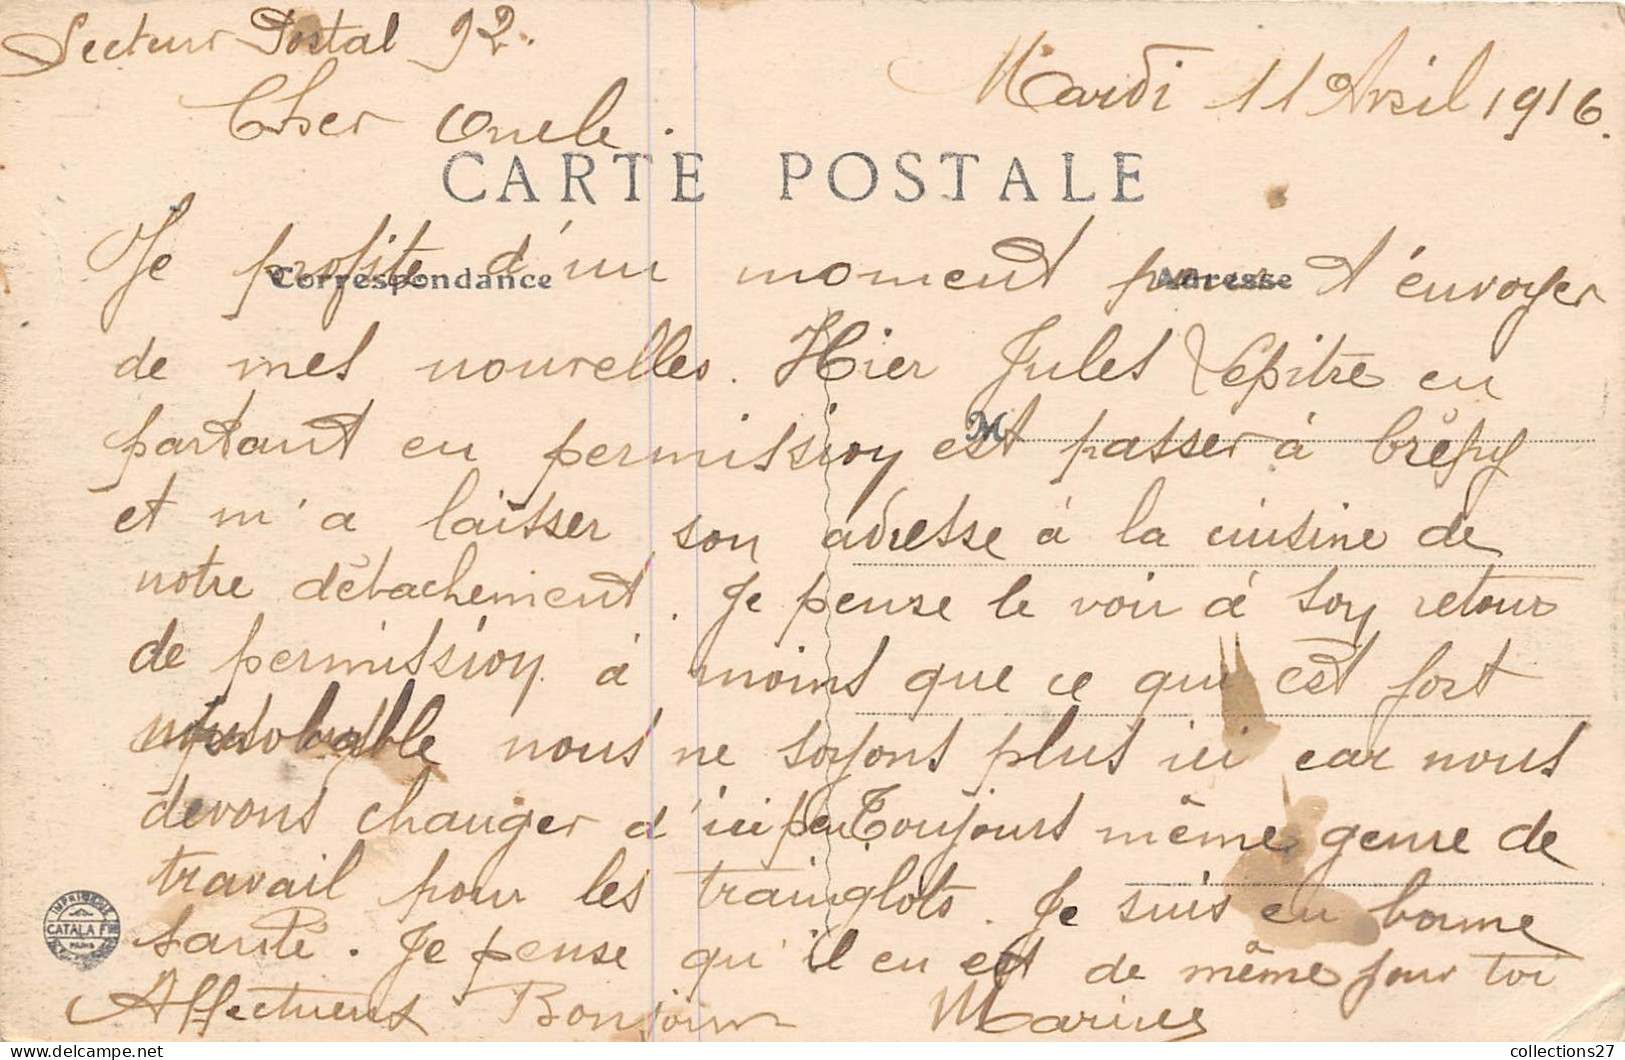 Secteur Postal 92.
Mardi 11 Avril 1916.
Cher Oncle.
CARTE POSTALE
Correspondance
Adresse
Je profite d'un moment pour t'envoyer
de mes nouvelles. Hier Jules Lepitre en
M
partant en permission est passer à Crépy
et m'a laisser son adresse à la cuisine de
notre détachement. Je pense le voir à son retour
de permission à moins que ce qui est fort
probable nous ne soyons plus ici car nous
devons changer d'ici peu Toujours même genre de
travail pour les trainglots. Je suis en bonne
santé. Je pense qu'il en est de même pour toi
Affectueux Bonjour Marius
IMPRIMERIE
CATALA Fres
PARIS
collections27